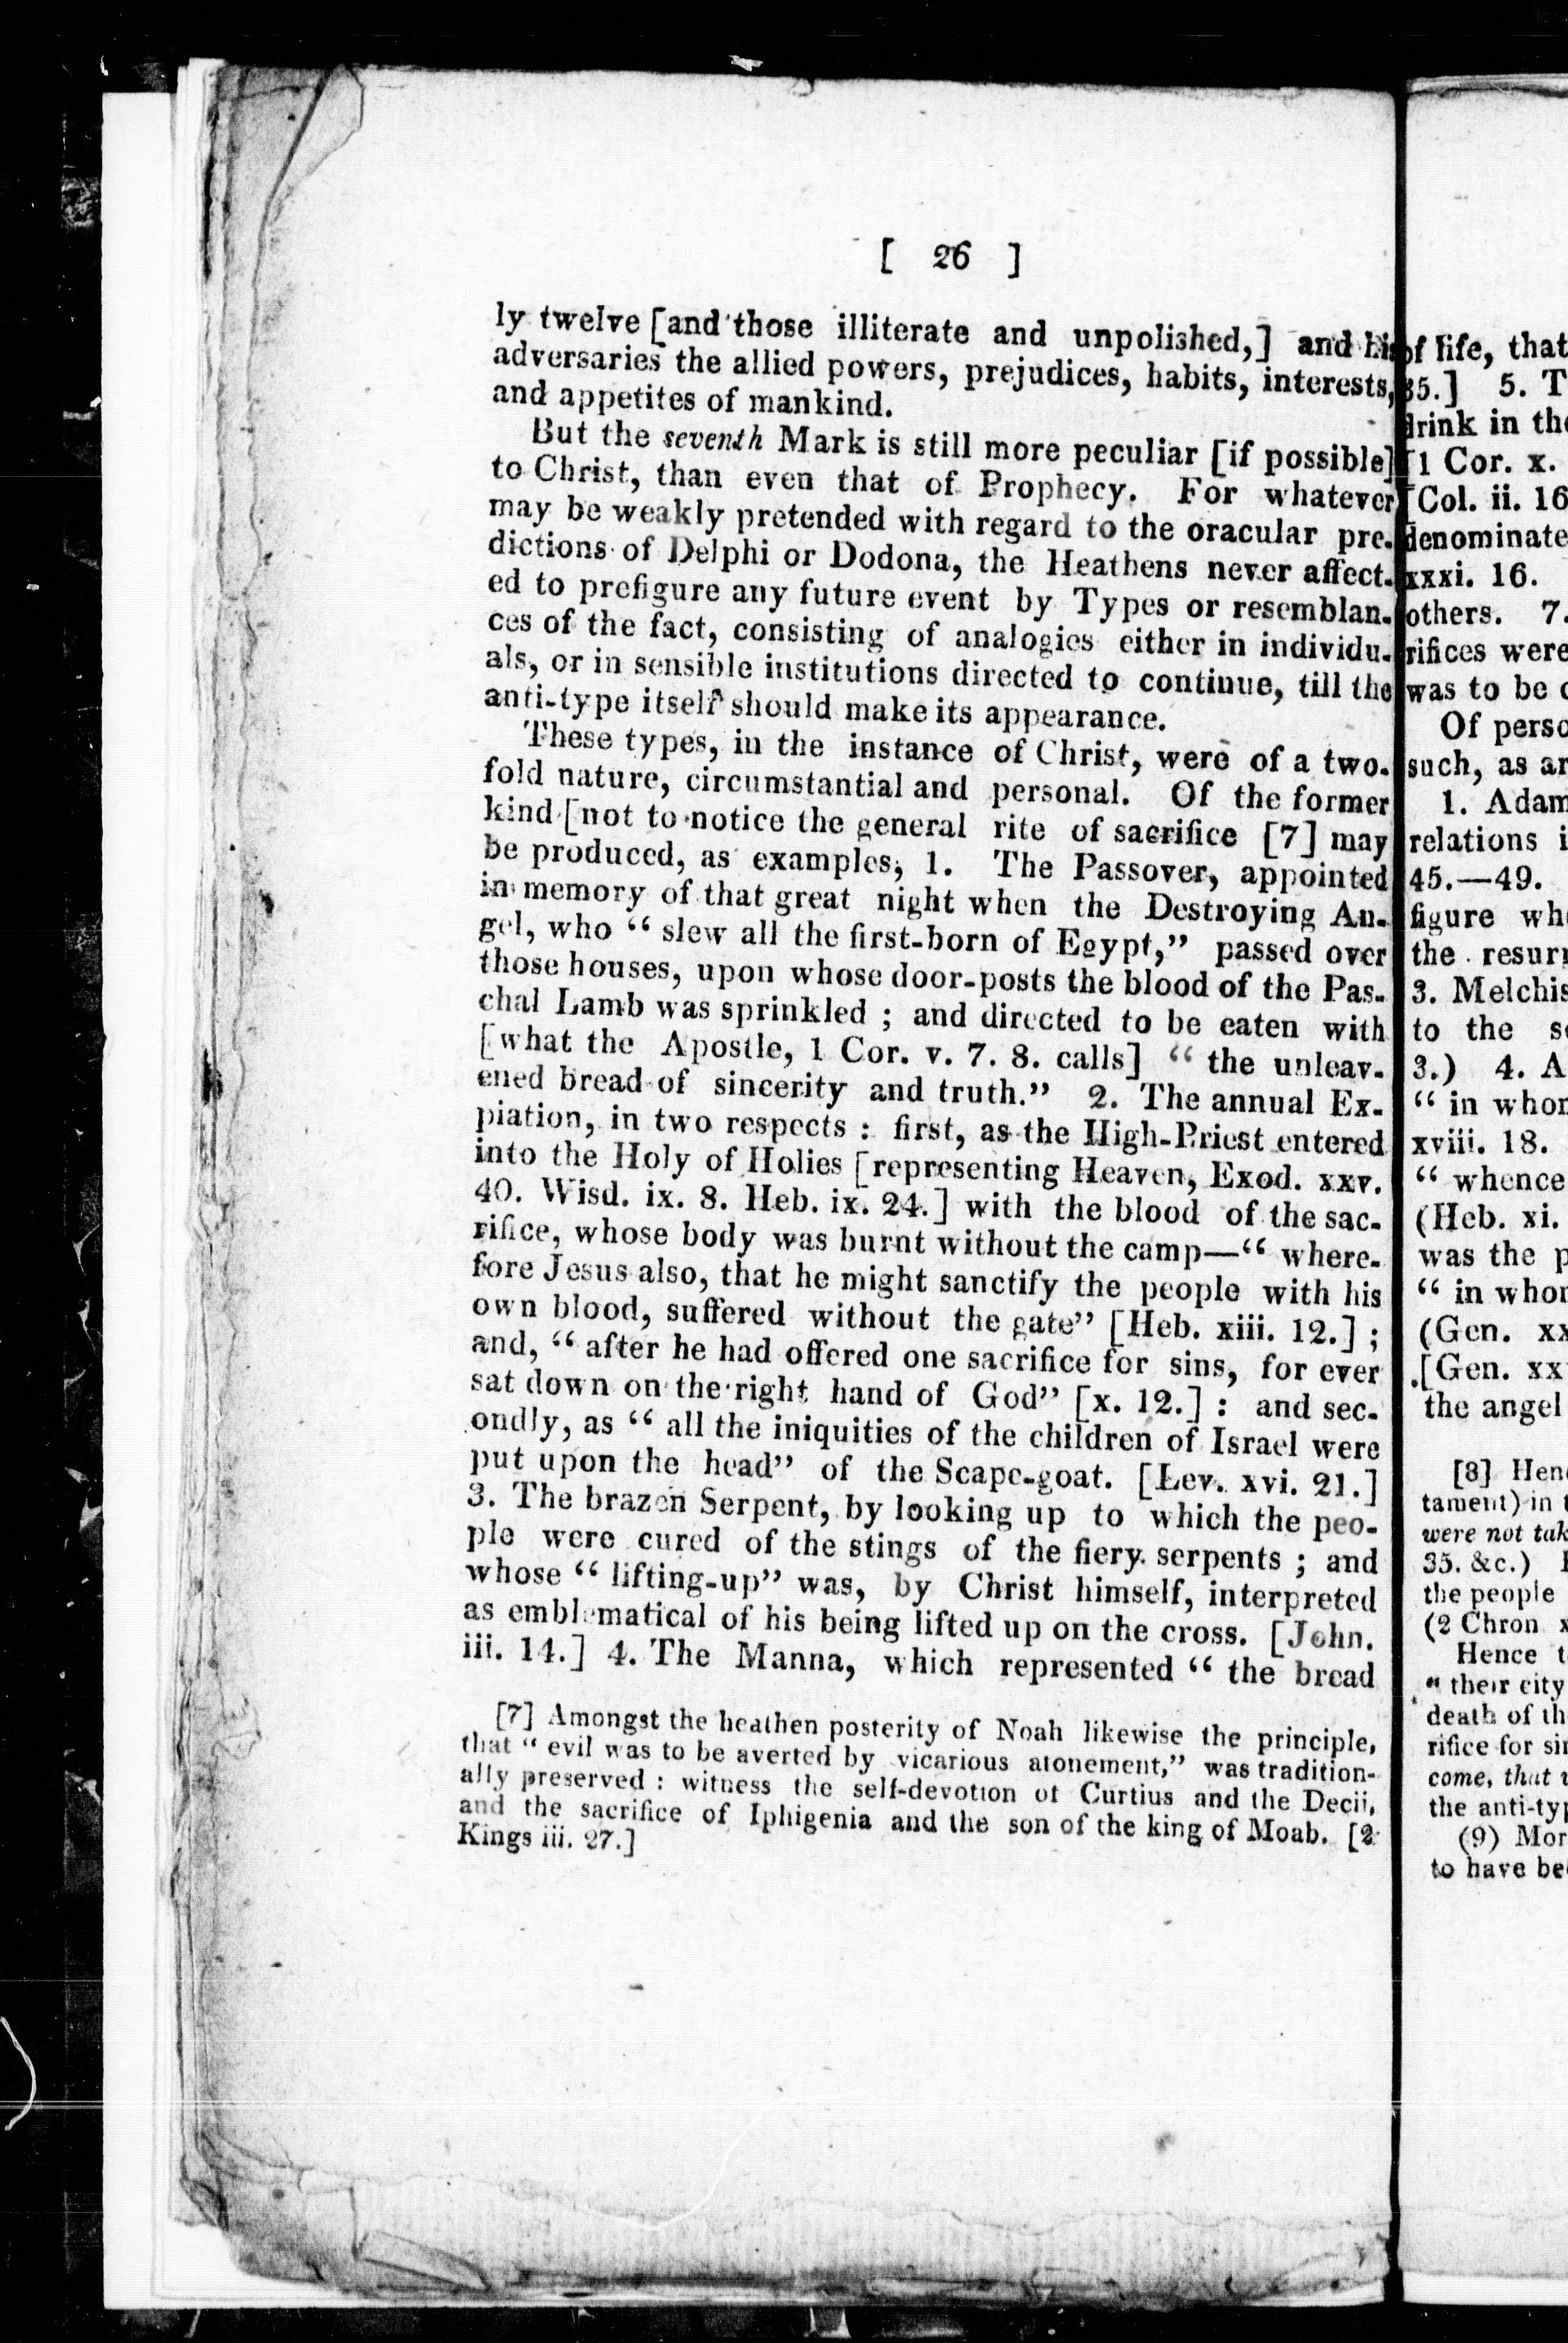 [ 26 ]
ly twelve [and those illiterate and unpolished,] and his
adversaries the allied powers, prejudices, habits, interests,
and appetites of mankind.
But the seventh Mark is still more peculiar [if possible]
to Christ, than even that of Prophecy. For whatever
may be weakly pretended with regard to the oracular pre-
dictions of Delphi or Dodona, the Heathens never affect-
ed to prefigure any future event by Types or resemblan-
ces of the fact, consisting of analogies either in individu-
als, or in sensible institutions directed to continue, till the
anti-type itself should make its appearance.
These types, in the instance of Christ, were of a two-
fold nature, circumstantial and personal. Of the former
kind [not to notice the general rite of sacrifice [7] may
be produced, as examples, 1. The Passover, appointed
in memory of that great night when the Destroying An-
gel, who “ slew all the first-born of Egypt,” passed over
those houses, upon whose door-posts the blood of the Pas-
chal Lamb was sprinkled ; and directed to be eaten with
[what the Apostle, 1 Cor. v. 7. 8. calls] “ the unleav-
ened bread of sincerity and truth.” 2. The annual Ex-
piation, in two respects : first, as the High-Priest entered
into the Holy of Holies [representing Heaven, Exod. xxv.
40. Wisd. ix. 8. Heb. ix. 24.] with the blood of the sac-
rifice, whose body was burnt without the camp—“ where-
fore Jesus also, that he might sanctify the people with his
own blood, suffered without the gate” [Heb. xiii. 12.] ;
and, “ after he had offered one sacrifice for sins, for ever
sat down on the right hand of God” [x. 12.] : and sec-
ondly, as “ all the iniquities of the children of Israel were
put upon the head” of the Scape-goat. [Lev. xvi. 21.]
3. The brazen Serpent, by looking up to which the peo-
ple were cured of the stings of the fiery serpents ; and
whose “ lifting-up” was, by Christ himself, interpreted
as emblematical of his being lifted up on the cross. [John.
iii. 14.] 4. The Manna, which represented “ the bread
[7] Amongst the heathen posterity of Noah likewise the principle,
that “ evil was to be averted by vicarious atonement,” was tradition-
ally preserved : witness the self-devotion of Curtius and the Decii,
and the sacrifice of Iphigenia and the son of the king of Moab. [2
Kings iii. 27.]
of life, that
35.] 5. T
drink in the
[1 Cor. x.
[Col. ii. 16
denominate
xxxi. 16.
others. 7.
rifices were
was to be
Of perso
such, as ar
1. Adam
relations i
45.—49.
figure wh
the resurr
3. Melchis
to the s
3.) 4. A
“ in whom
xviii. 18.
“ whence
(Heb. xi.
was the p
“ in whom
(Gen. xx
[Gen. xx
the angel
[8] Hen
tament) in
were not tak
35. &c.)
the people
(2 Chron x
Hence t
“ their city
death of th
rifice for sin
come, that
the anti-typ
(9) Mor
to have be